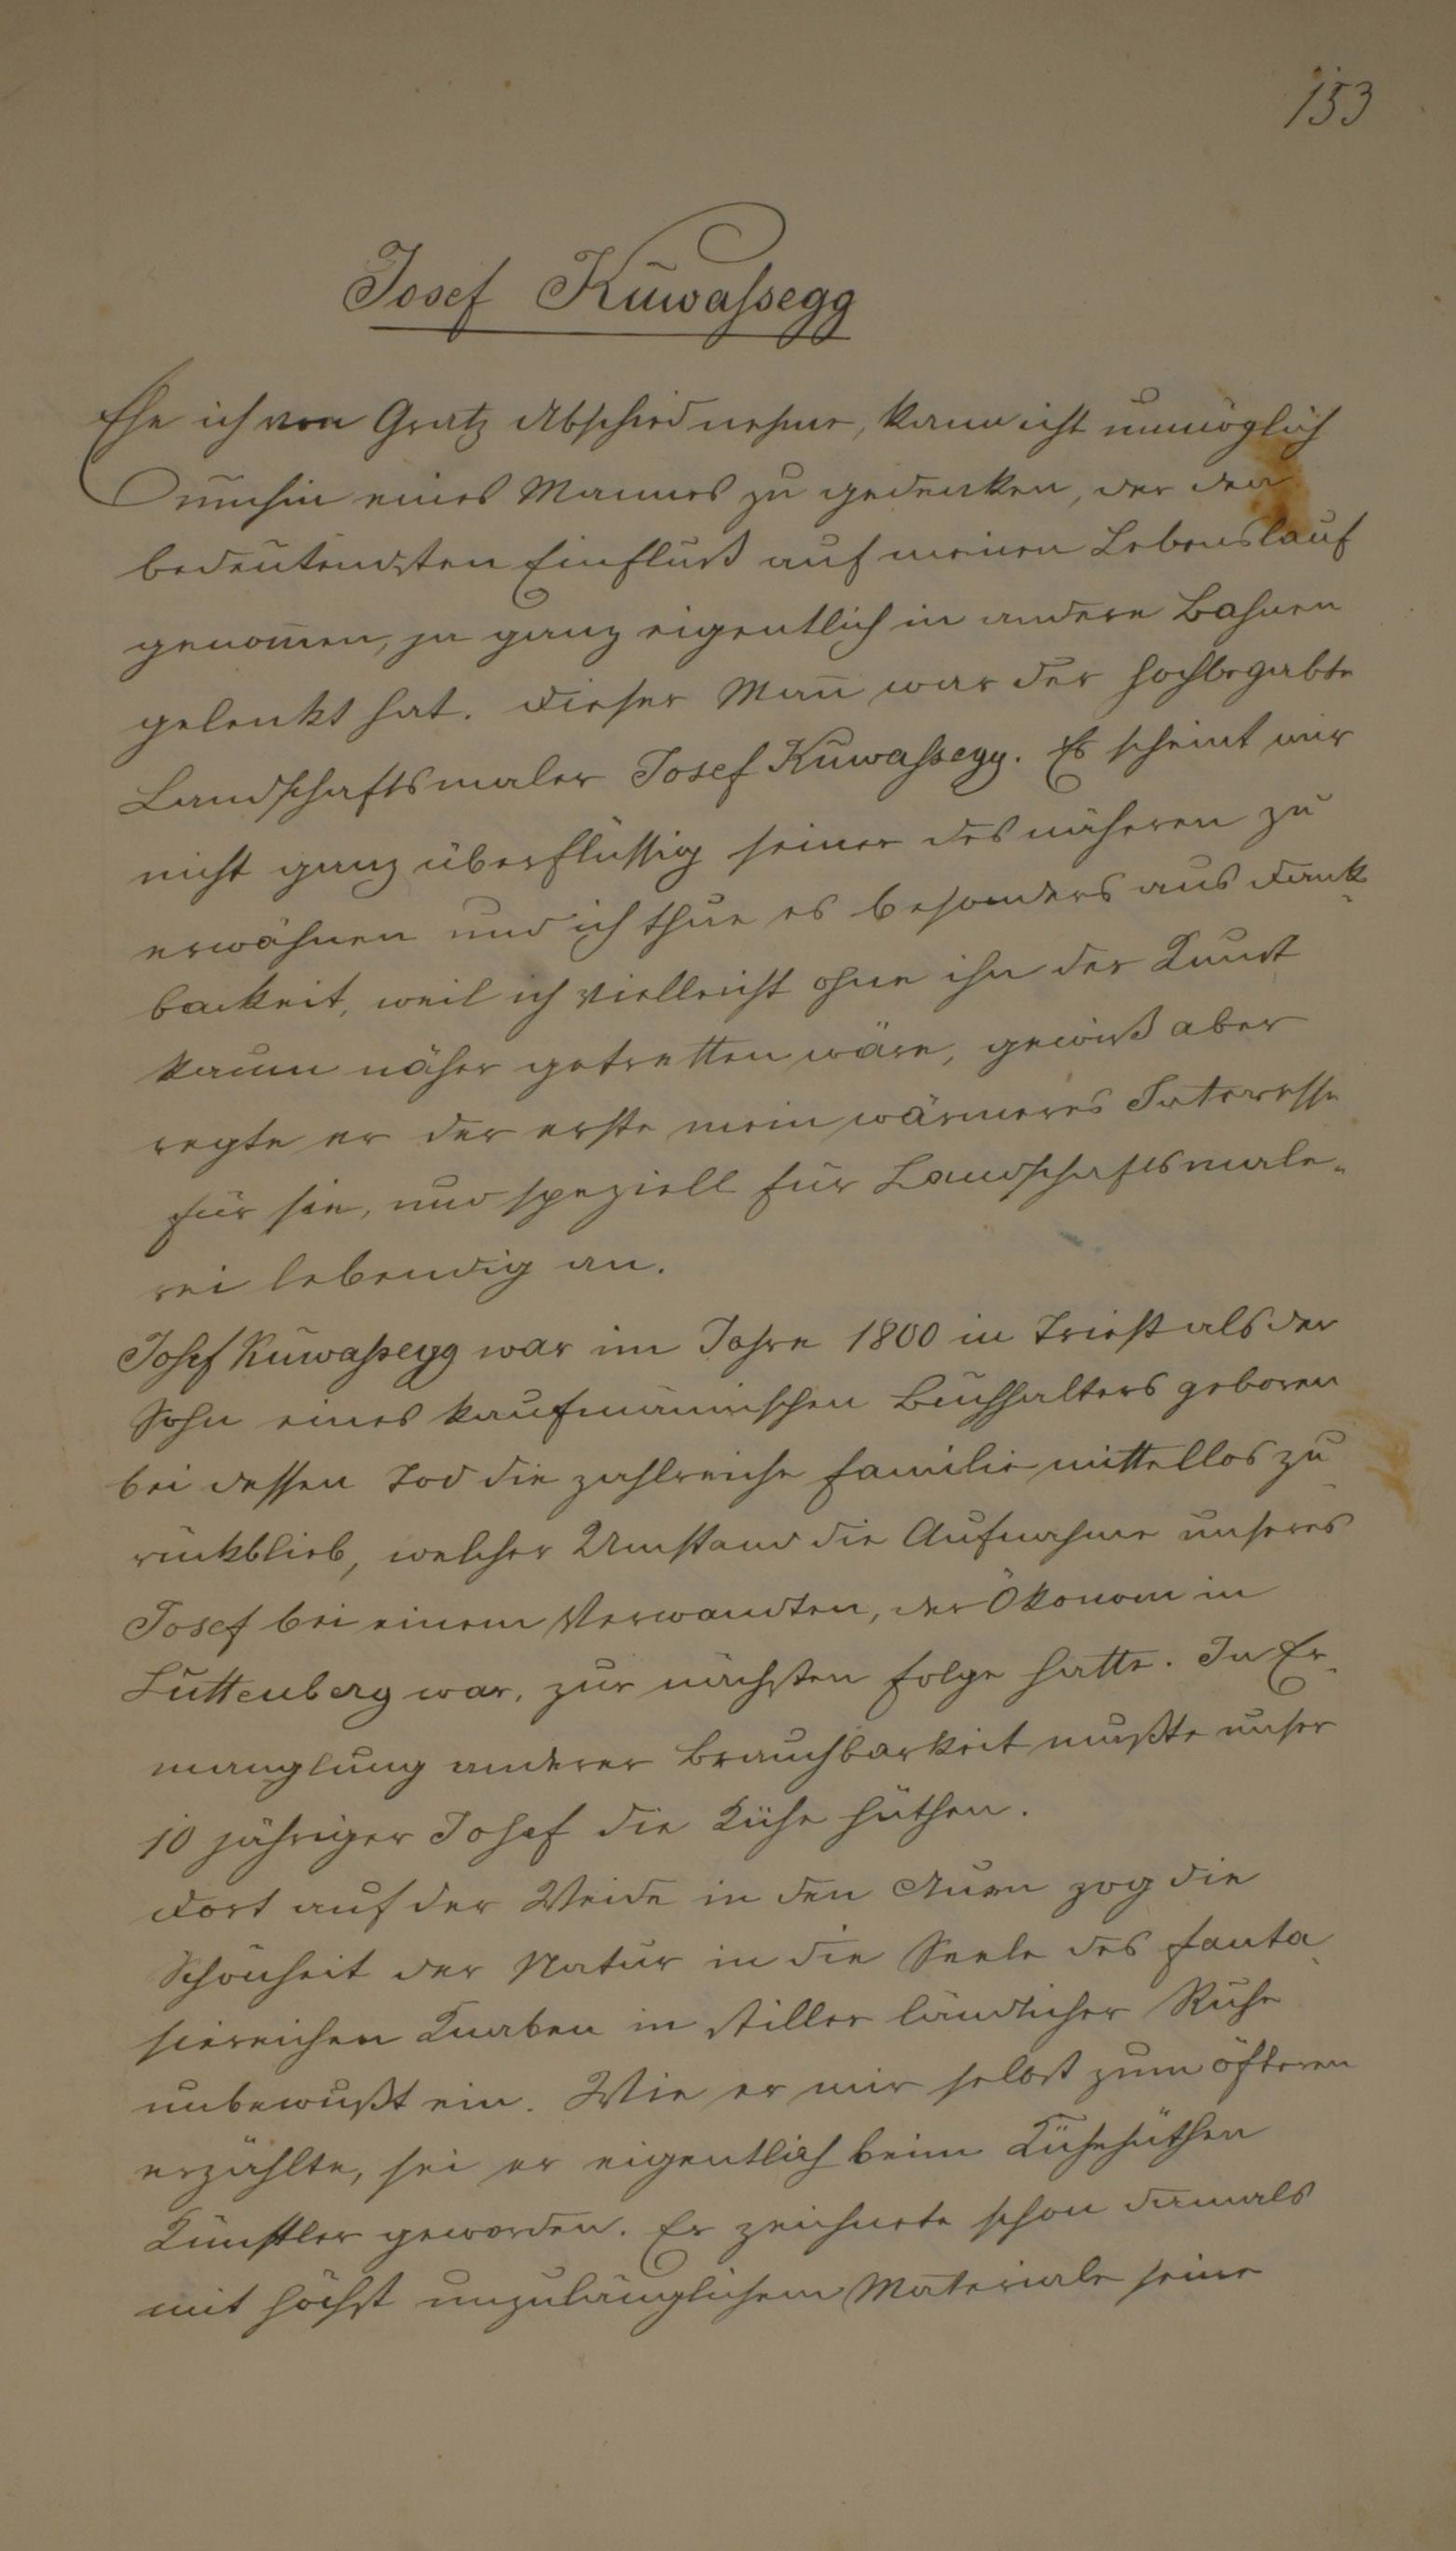 153
Josef Kuwassegg
Ehe ich von Gratz Abschied nehme, kann ich unmöglich
umhin eines Mannes zu gedenken, der den
bedeutendsten Einfluß auf meinen Lebenslauf
genom̄en, ja ganz eigentlich in andere Bahnen
gelenkt hat. Dieser Man̄ war der hochbegabte
Landschaftsmaler Josef Kuwassegg. Es scheint mir
nicht ganz überflüssig seiner des näheren zu
erwähnen und ich thue es besonders aus Dank-
barkeit, weil ich vielleicht ohne ihn der Kunst
kaum näher getretten wäre, gewiß aber
regte er der erste mein wärmeres Interesse
für sie, und speziell für Landschaftsmale-
rei lebendig an.
Josef Kuwassegg war im Jahre 1800 in Triest als der
Sohn eines kaufmännischen Buchhalters geboren
bei dessen Tod die zahlreiche Familie mittellos zu
rückblieb, welcher Umstand die Aufnahme unseres
Josef bei einem Verwandten, der Ökonom in
Luttenberg war, zur nächsten Folge hatte. In Er-
manglung anderer Brauchbarkeit mußte unser
10 jähriger Josef die Kühe hüthen.
Dort auf der Weide in den Auen zog die
Schönheit der Natur in die Seele des fanta-
siereichen Knaben in stiller ländlicher Ruhe
unbewußt ein. Wie er mir selbst zum öfteren
erzählte, sei er eigentlich beim Kühehüthen
Künstler geworden. Er zeichnete schon damals
mit höchst unzulänglichem Materiale seine